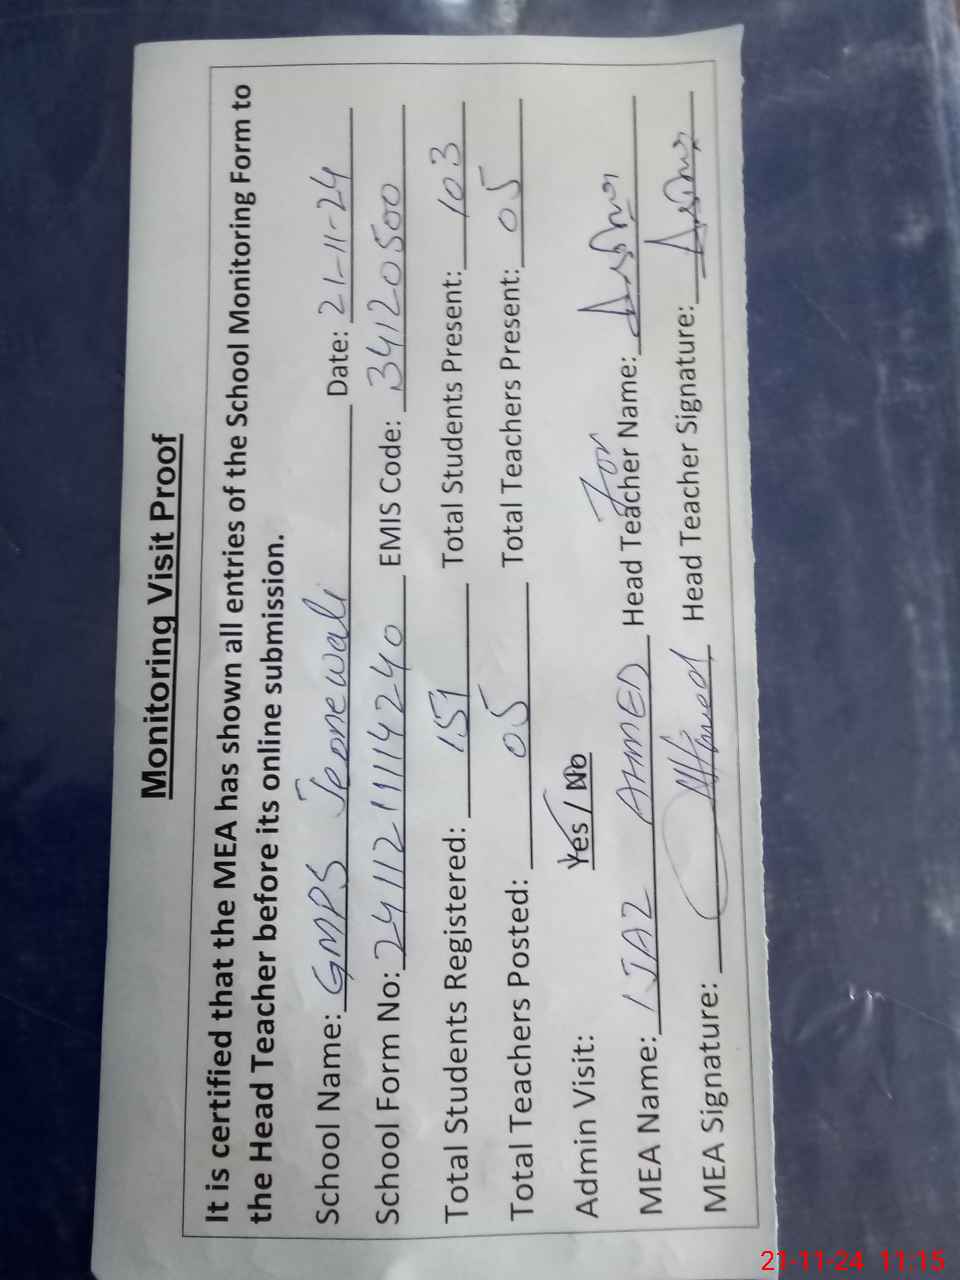 Monitoring Visit Proof
It is certified that the MEA has shown all entries of the School Monitoring Form to
the Head Teacher before its online submission.
School Name: GMPS Jeonewali Date: 21-11-24
School Form No: 2411211114240 EMIS Code: 34120500
Total Students Registered: 151 Total Students Present: 103
Total Teachers Posted: 05 Total Teachers Present: 05
Admin Visit: Yes / No For
MEA Name: IJAZ AHMED Head Teacher Name:
MEA Signature: Ahmed Head Teacher Signature:
21-11-24 11:15